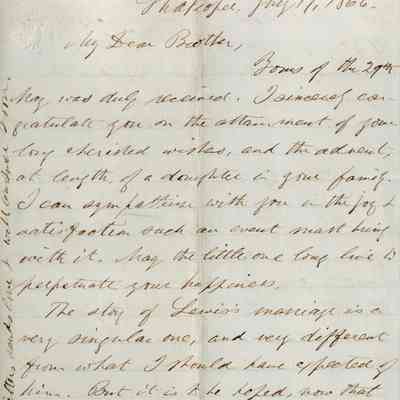 Shakopee, July 1, 1866.
My Dear Brother,
Yours of the 29th
May was duly received. I sincerely con-
gratulate you on the attainment of your
long cherished wishes, and the advent,
at length of a daughter in your family.
I can sympathise with you in the joy &
satisfaction such an event must bring
with it. May the little one long live to
perpetuate your happiness.
The story of Lewis's marriage is a
very singular one, and very different
from what I should have expected of
him. But it is to be hoped, now that